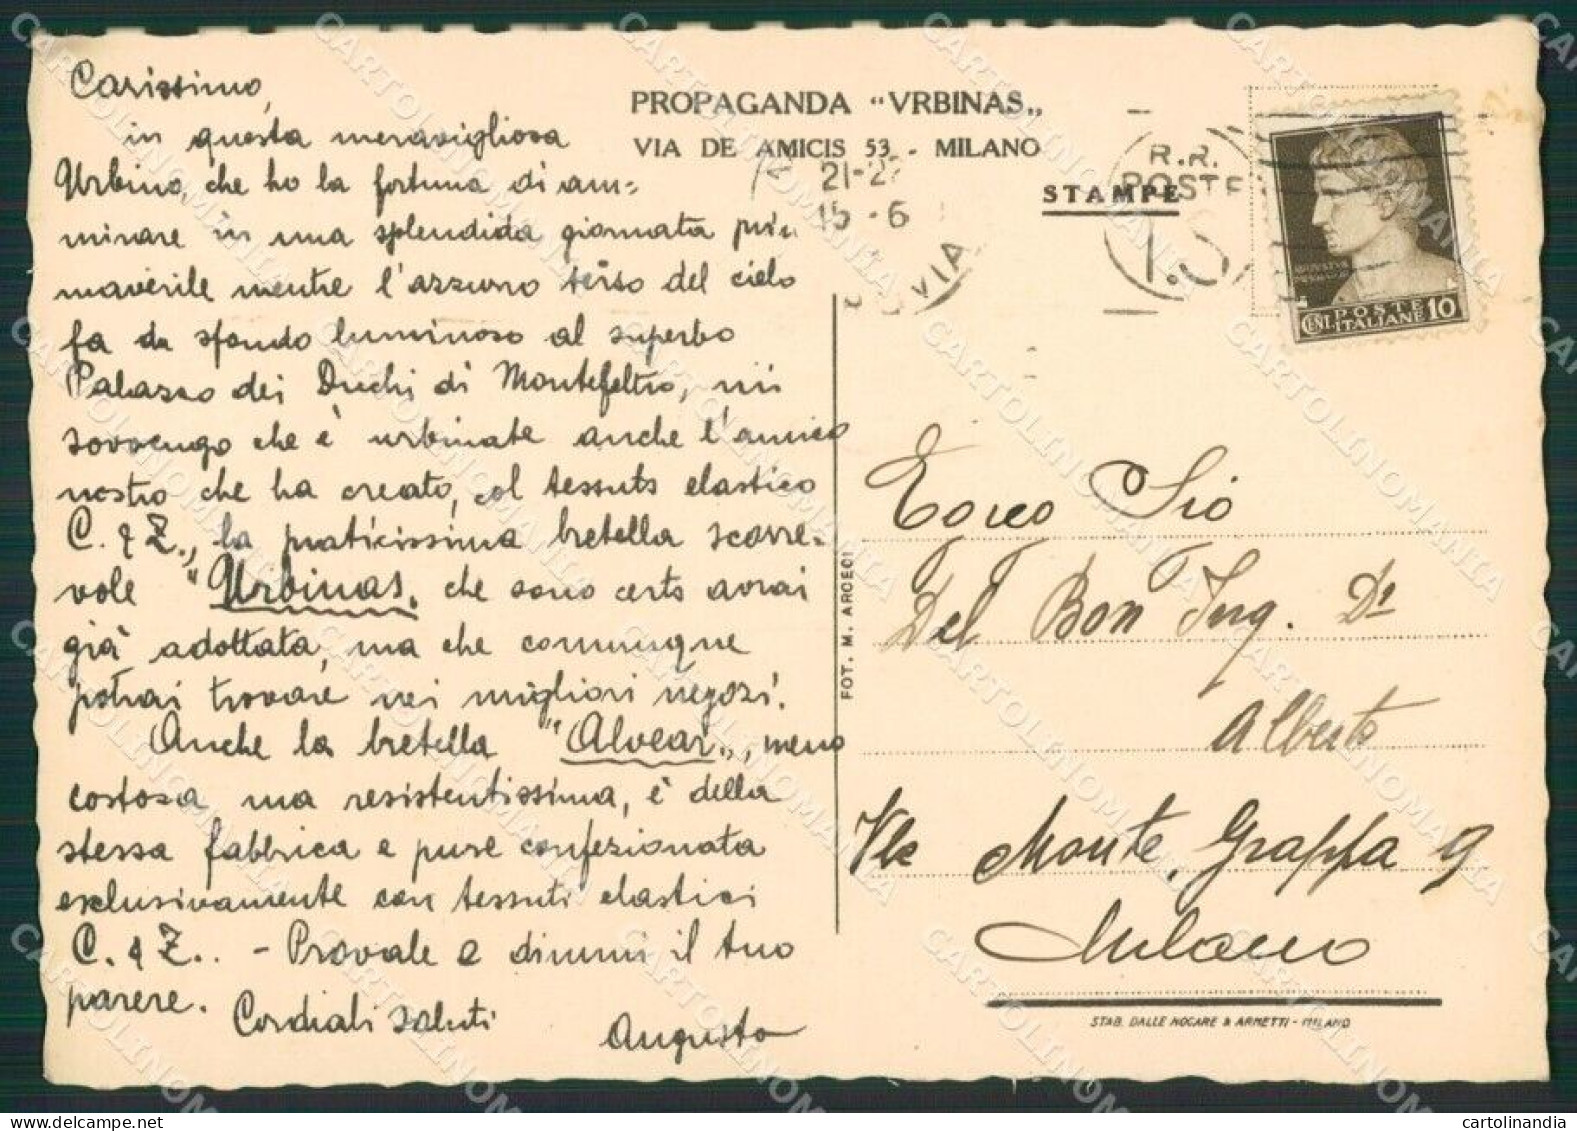 Carissimo,
in questa meravigliosa
Urbino, che ho la fortuna di am=
mirare in una splendida giornata pri
maverile mentre l'azzurro terso del cielo
fa da sfondo luminoso al superbo
Palazzo dei Duchi di Montefeltro, mi
sovvengo che è urbinate anche l'amico
nostro che ha creato, col tessuto elastico
C. & Z., la praticissima bretella scorre-
vole "Urbinas" che sono certo avrai
già adottata, ma che comunque
potrai trovare nei migliori negozi.
Anche la bretella "Alvear", meno
costosa ma resistentissima, è della
stessa fabbrica e pure confezionata
esclusivamente con tessuti elastici
C. & Z.. - Provale e dimmi il tuo
parere.
Cordiali saluti
Augusto
PROPAGANDA "VRBINAS„
VIA DE AMICIS 53 - MILANO
STAMPE
21-2
15 - 6
VIA
R.R.
POSTE
CENT. POSTE ITALIANE 10
FOT. M. ARCECI
Del Bon Ing. Dr
Alberto
Vle Monte Grappa 9
Milano
STAB. DALLE NOGARE & ARMETTI - MILANO
CARTOLINOMANIA
cartolinandia